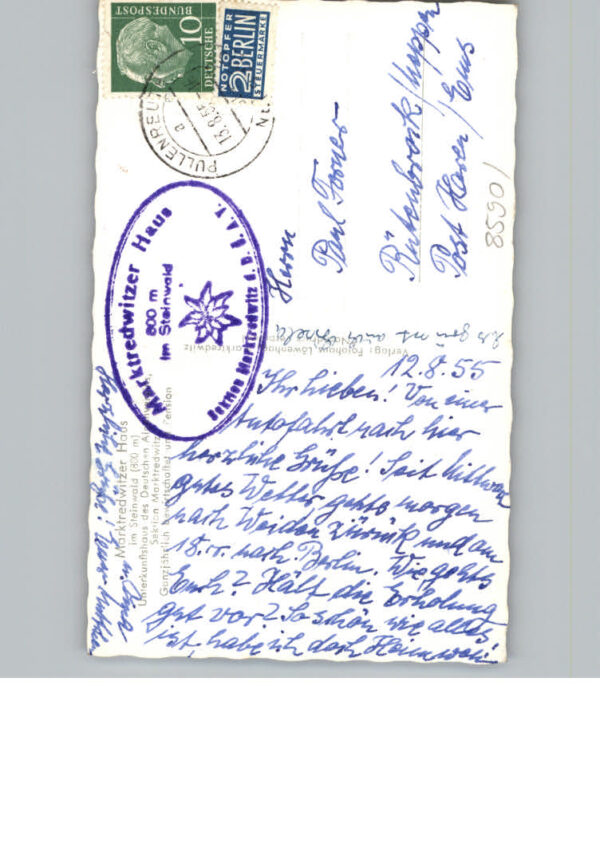 10
DEUTSCHE
BUNDESPOST
NOTOPFER
2 BERLIN
STEUERMARKE
PULLENREUTH
a
13.8.55
Marktredwitzer Haus
800 m
im Steinwald
Sektion Marktredwitz d. D.A.V.
Herrn
Paul
Rütenbrock/Meppen
Post Haren/Ems
85901
Marktredwitzer Haus
im Steinwald (800 m)
Unterkunftshaus des Deutschen
Sektion Marktredwitz
Ganzjährlich bewirtschaftet und Pension
Verlag: Fotohaus Marktredwitz
12.8.55
Ihr Lieben! Von einer
Autofahrt nach hier
herzliche Grüße! Seit
gutes Wetter, gehts morgen
nach Weiden zurück und am
18. nach Berlin. Wie gehts
Euch? Hält die Erholung
gut vor? So schön wie alles
ist, habe ich doch Heimweh!
Herzliche Grüße!